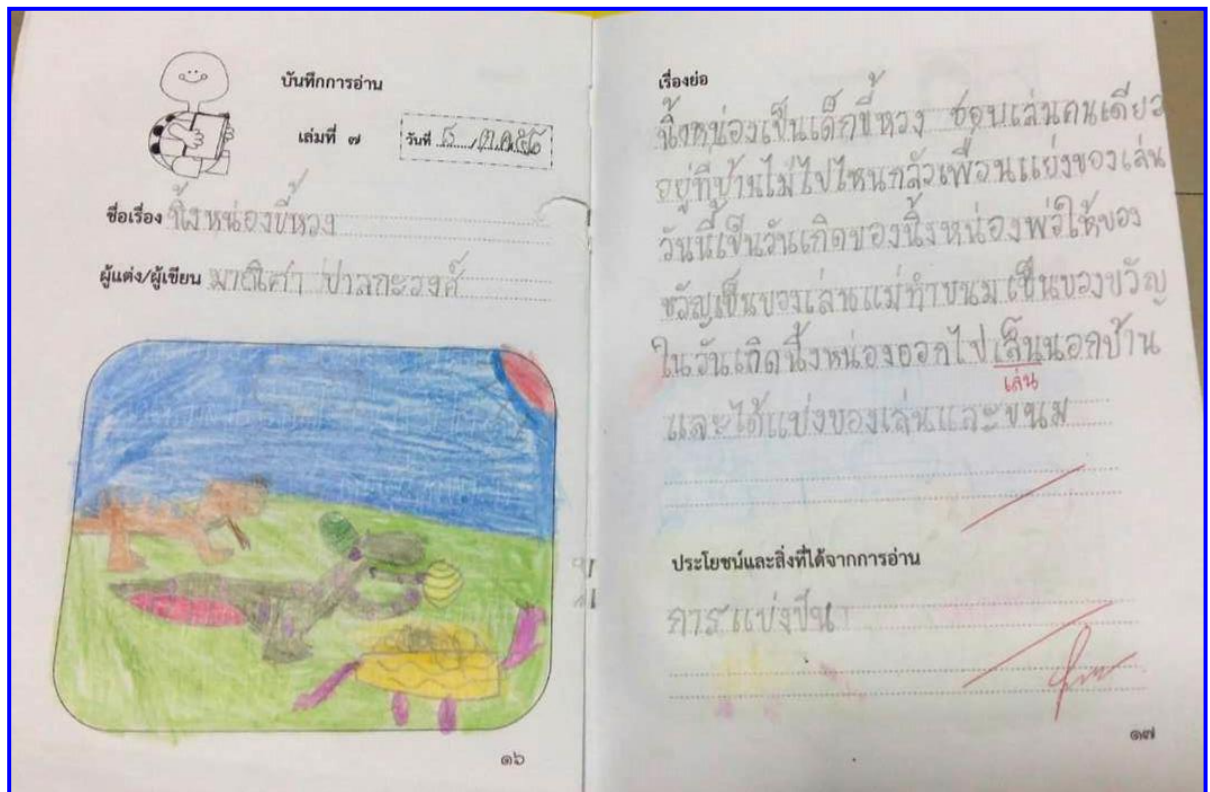 บันทึกการอ่าน
เล่มที่ ๗
วันที่
ชื่อเรื่อง นิ้งหน่องขี้หวง
ผู้แต่ง/ผู้เขียน มาณิศา ปาลกะวงศ์
๑๖
เรื่องย่อ
นิ้งหน่องเป็นเด็กขี้หวง ชอบเล่นคนเดียว
อยู่ที่บ้านไม่ไปไหนกลัวเพื่อนแย่งของเล่น
วันนี้เป็นวันเกิดของนิ้งหน่องพ่อให้ของ
ขวัญเป็นของเล่นแม่ทำขนมเป็นของขวัญ
ในวันเกิดนิ้งหน่องออกไปเล็นนอกบ้าน
เล่น
และได้แบ่งของเล่นและขนม
ประโยชน์และสิ่งที่ได้จากการอ่าน
การแบ่งปัน
๑๗